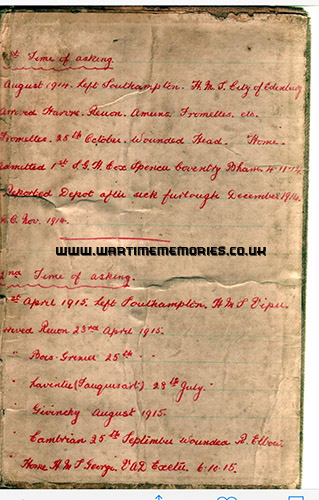 1st Time of asking.
August 1914. Left Southampton. H.M.T. City of Edenburg
arrived Havre. Rouen. Amiens. Fromelles. etc.
Fromelles. 25th October. Wounded Head. Home.
admitted 1st S.G.H. Coventry 4.11.14
Reported Depot after sick furlough December 1914.
Nov. 1914.
www.wartimememories.co.uk
2nd Time of asking.
April 1915. Left Southampton. H.M.T
arrived Rouen 23rd April 1915.
" Bois-Grenier 25th " "
" Laventie (Fauquisart) 28th July. "
" Givinchy August 1915.
" Cambrian 25th September Wounded R. Elbow
" Home H.M.T George. VAD Exeter 6.10.15.